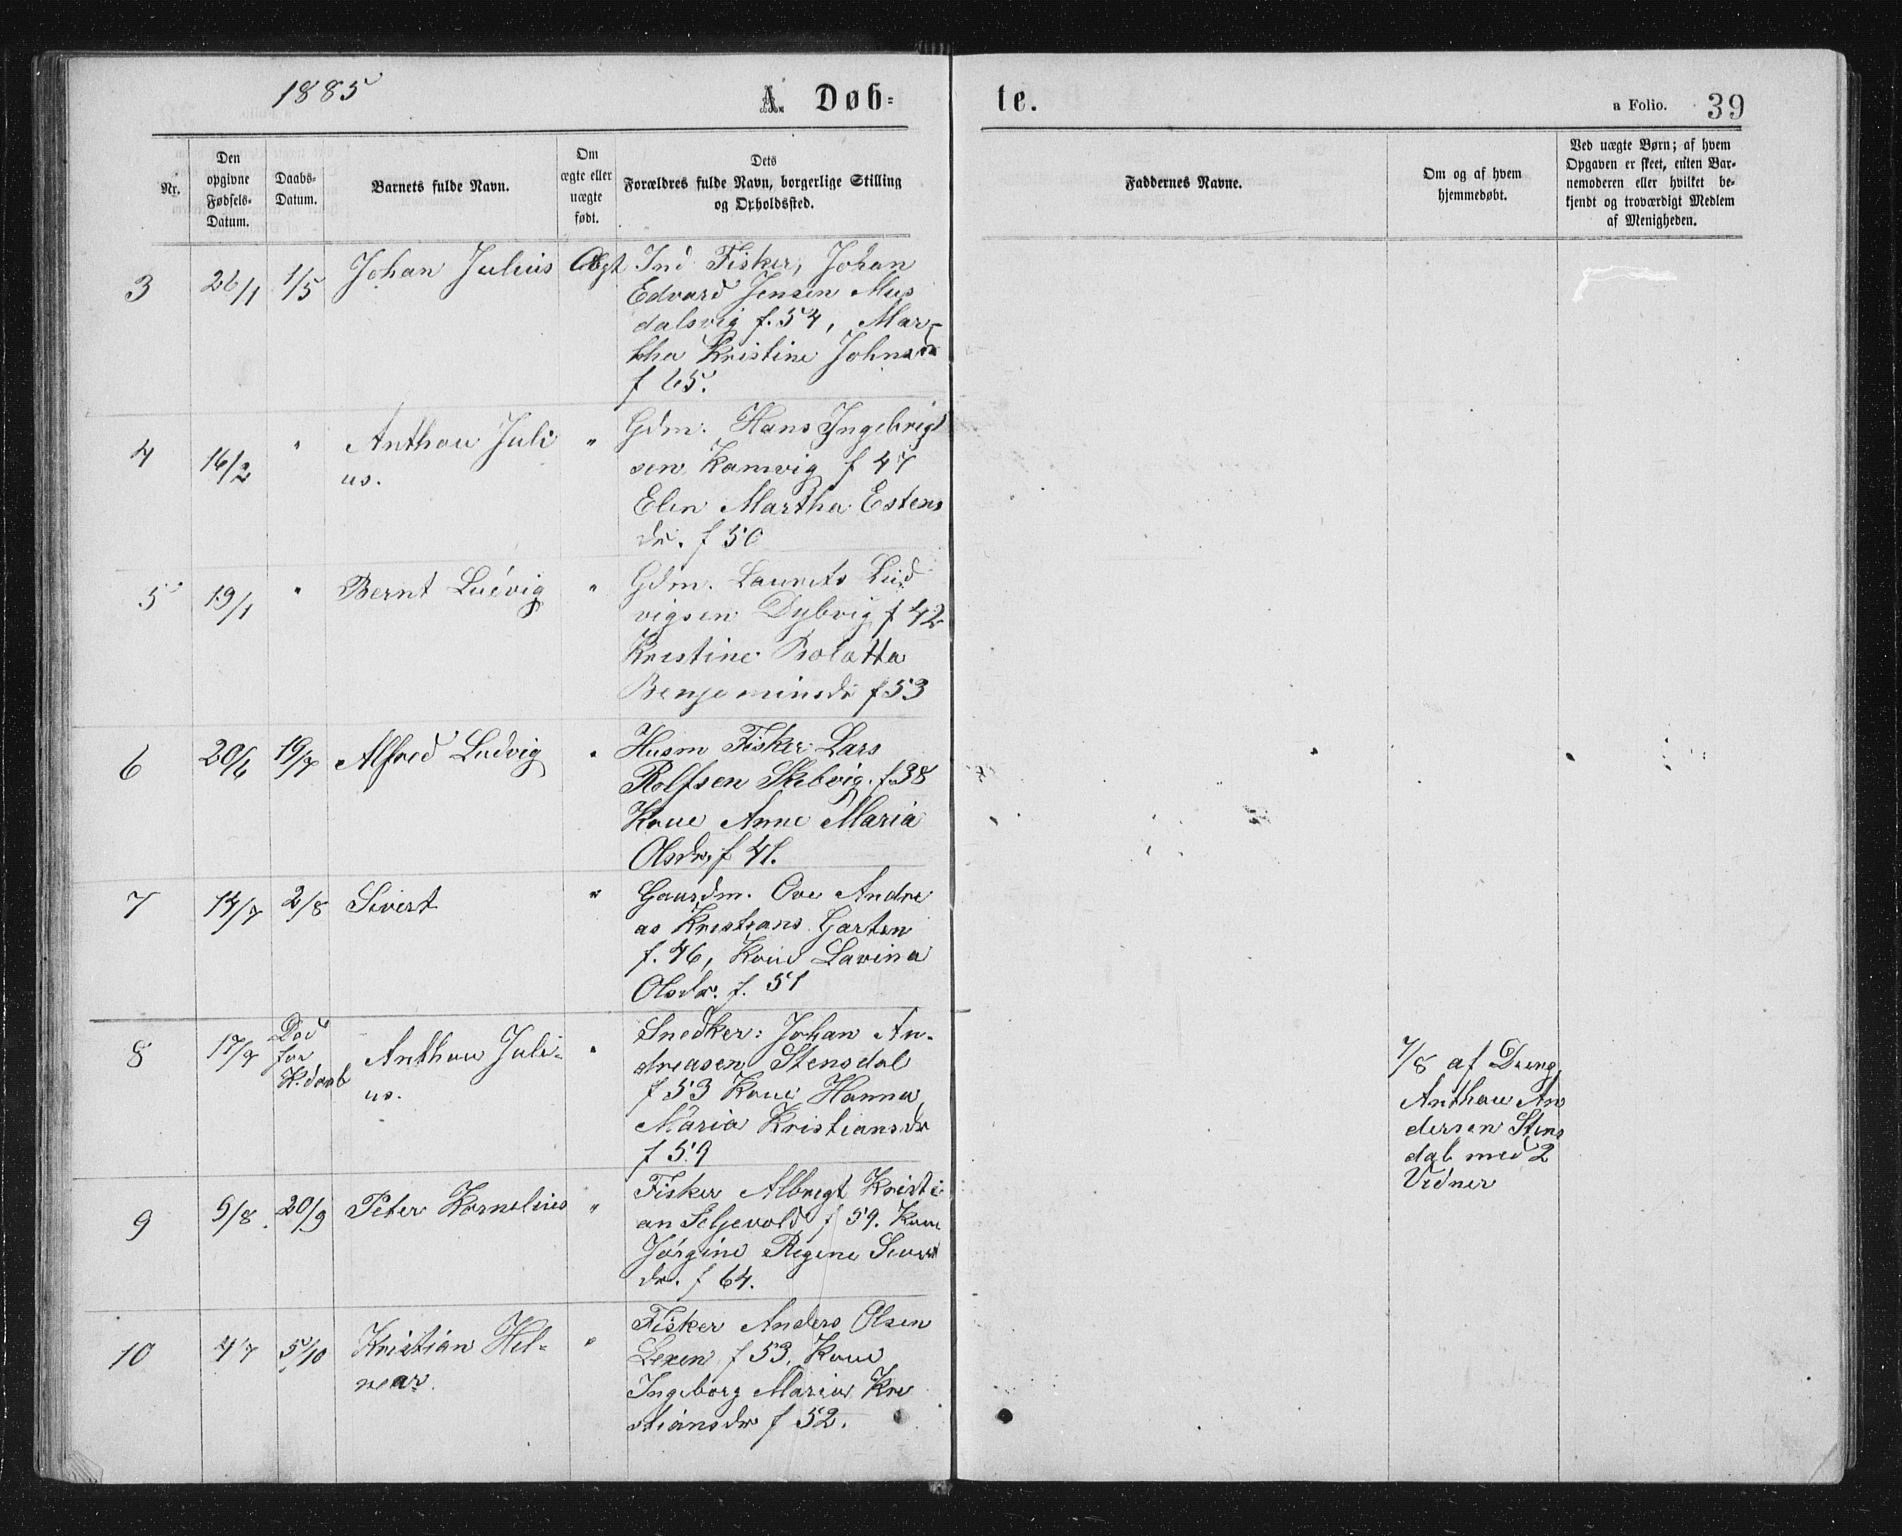 1885
A. Døb-
te.
a Folio. 39
Nr.
Den
opgivne
Fødsels-
Datum.
Daabs-
Datum.
Barnets fulde Navn.
Om
ægte eller
uægte
født.
Dets
Forældres fulde Navn, borgerlige Stilling
og Opholdssted.
Faddernes Navne.
Om og af hvem
hjemmedøbt.
Ved uægte Børn; af hvem
Opgaven er skeet, enten Bar-
nemoderen eller hvilket be-
kjendt og troværdigt Medlem
af Menigheden.
3 26/1 1/5 Johan Julius Ægt Ind Fisker, Johan
Edvard Jensen Mus
dalsvig f. 54, Mar-
tha Kristine Johnsdr
f 65.
4 16/2 " Anthon Juli
us. " Gdm. Hans Ingebrigt
sen Kamvig f 47
Elen Martha Estens
dr. f 50
5 19/1 " Bernt Ludvig " Gdm. Laurits Lud
vigsen Dybvig f 42
Kristine Bolatta
Benjaminsdr f 53
6 20/6 19/7 Alfred Ludvig " Husm Fisker Lars
Rolfsen Skebvig f. 38
Kone Anne Maria
Olsdr, f 41.
7 14/7 2/8 Sivert " Gaardm. Ove Andre
as Kristians Garten
f. 46, Kone Lavina
Olsdr. f. 51
8 17/7 Død
før
K.daab Anthon Juli-
us. " Snedker: Johan An-
dreasen Stensdal
f 53 Kone Hanna
Maria Kristiansdr
f 59
7/8 af Dreng
Anthon An
dersen Stens
dal med 2
Vidner
9 5/8 20/9 Peter Kornelius " Fisker Albregt Kristi
an Seljevold f 59. Kone
Jørgine Regine Sivert
dr. f 64.
10 4/7 5/10 Kristian Hel-
mar. " Fisker Anders Olsen
Lexen f 53, Kone
Ingeborg Maria Kri
stiansdr f 52.